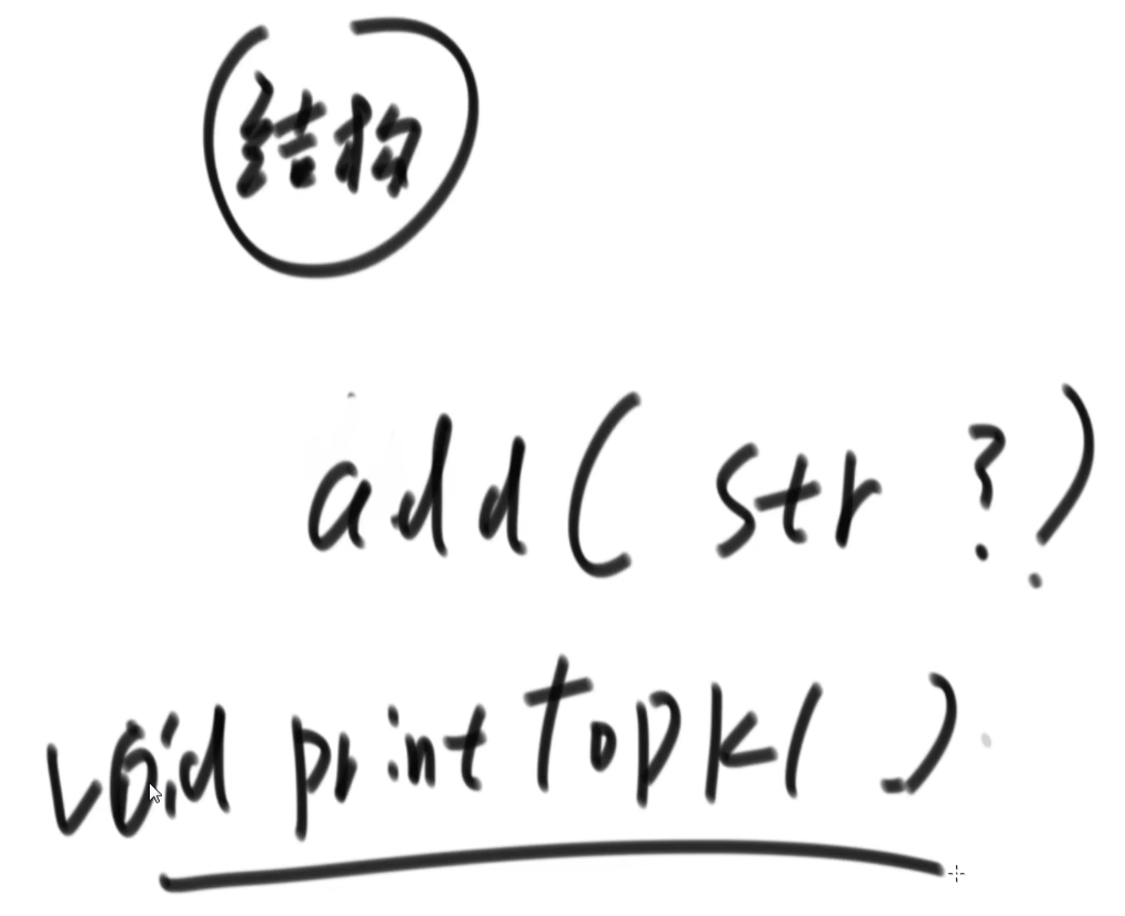 结构
add( str ?)
void printTopK( )